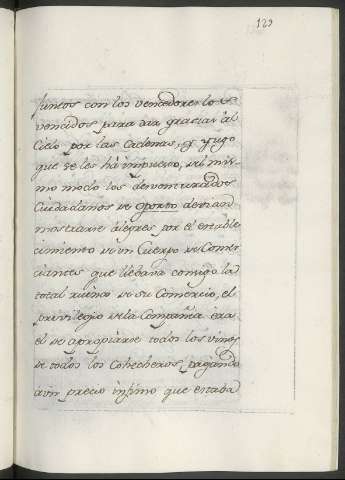 129
Juntos con los vencedores los
vencidos para dar gracias al
Cielo por las Cadenas, y yugo
que se les há impuesto, del mis,
mo modo los desventurados
Ciudadanos de Oporto devian
mostrarse álegres por el estable
cimiento de un Cuerpo de Comer
ciantes que llebava comigo la
total ruina de su Comercio, el
privilegio de la Compañia era
el de apropiarse todos los vinos
de todos los Cohecheros, pagando
á un precio infimo que estaba